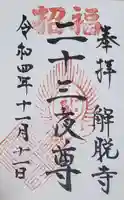 奉拝
解脱寺
招福
二十三夜尊
令和四年十一月十一日